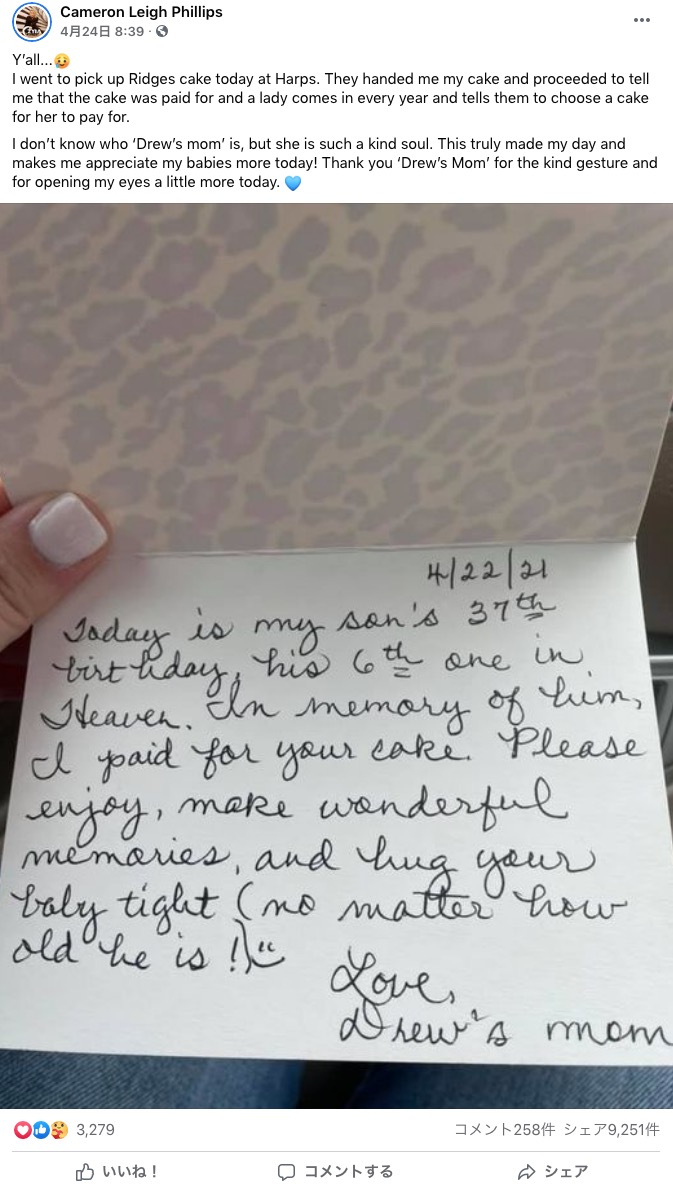 Cameron Leigh Phillips
4月24日 8:39 ·
Y'all...
I went to pick up Ridges cake today at Harps. They handed me my cake and proceeded to tell
me that the cake was paid for and a lady comes in every year and tells them to choose a cake
for her to pay for.
I don't know who 'Drew's mom' is, but she is such a kind soul. This truly made my day and
makes me appreciate my babies more today! Thank you 'Drew's Mom' for the kind gesture and
for opening my eyes a little more today.
4/22/21
Today is my son's 37th
birthday, his 6th one in
Heaven. In memory of him,
I paid for your cake. Please
enjoy, make wonderful
memories, and hug your
baby tight (no matter how
old he is!)
Love,
Drew's mom
3,279
コメント258件 シェア9,251件
いいね！ コメントする シェア